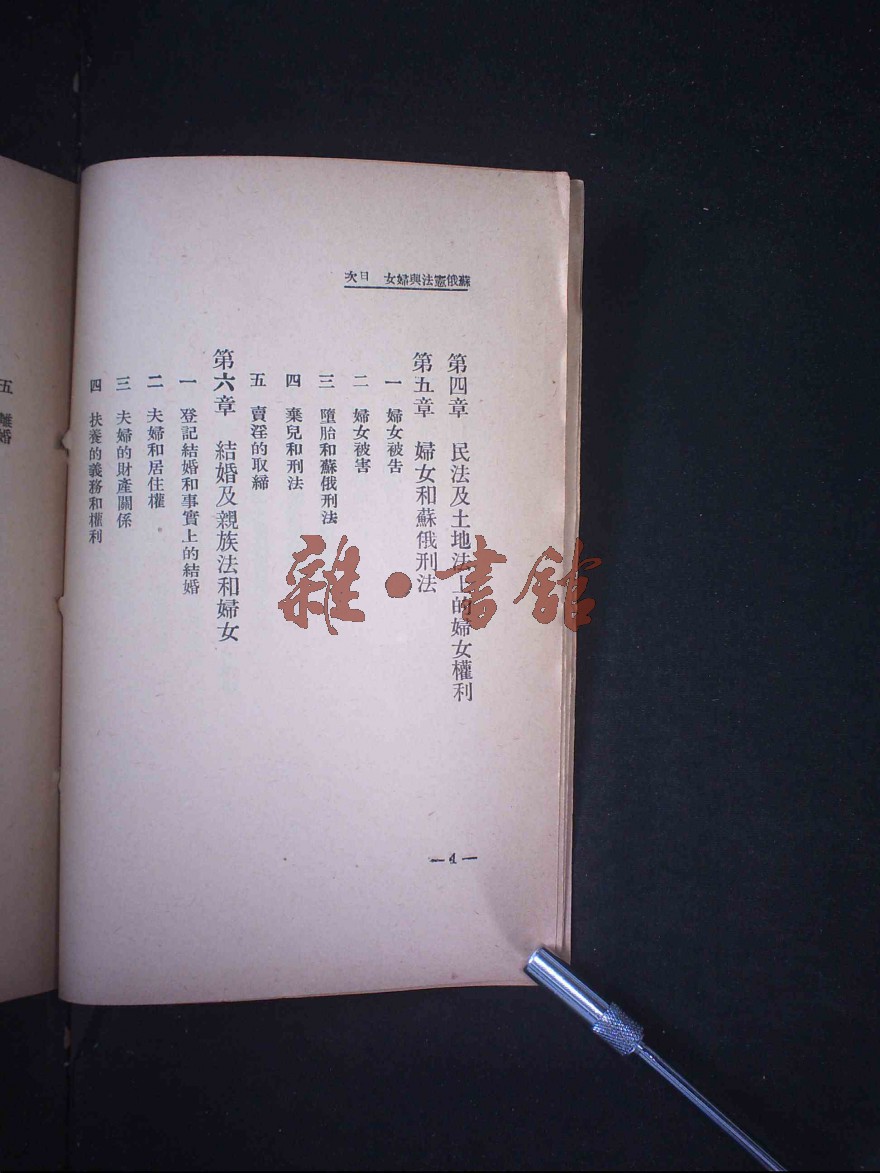 蘇俄憲法與婦女 目次
第四章 民法及土地法上的婦女權利
第五章 婦女和蘇俄刑法
一 婦女被告
二 婦女被害
三 墮胎和蘇俄刑法
四 棄兒和刑法
五 賣淫的取締
第六章 結婚及親族法和婦女
一 登記結婚和事實上的結婚
二 夫婦和居住權
三 夫婦的財產關係
四 扶養的義務和權利
—4—
五 離婚
雜·書館